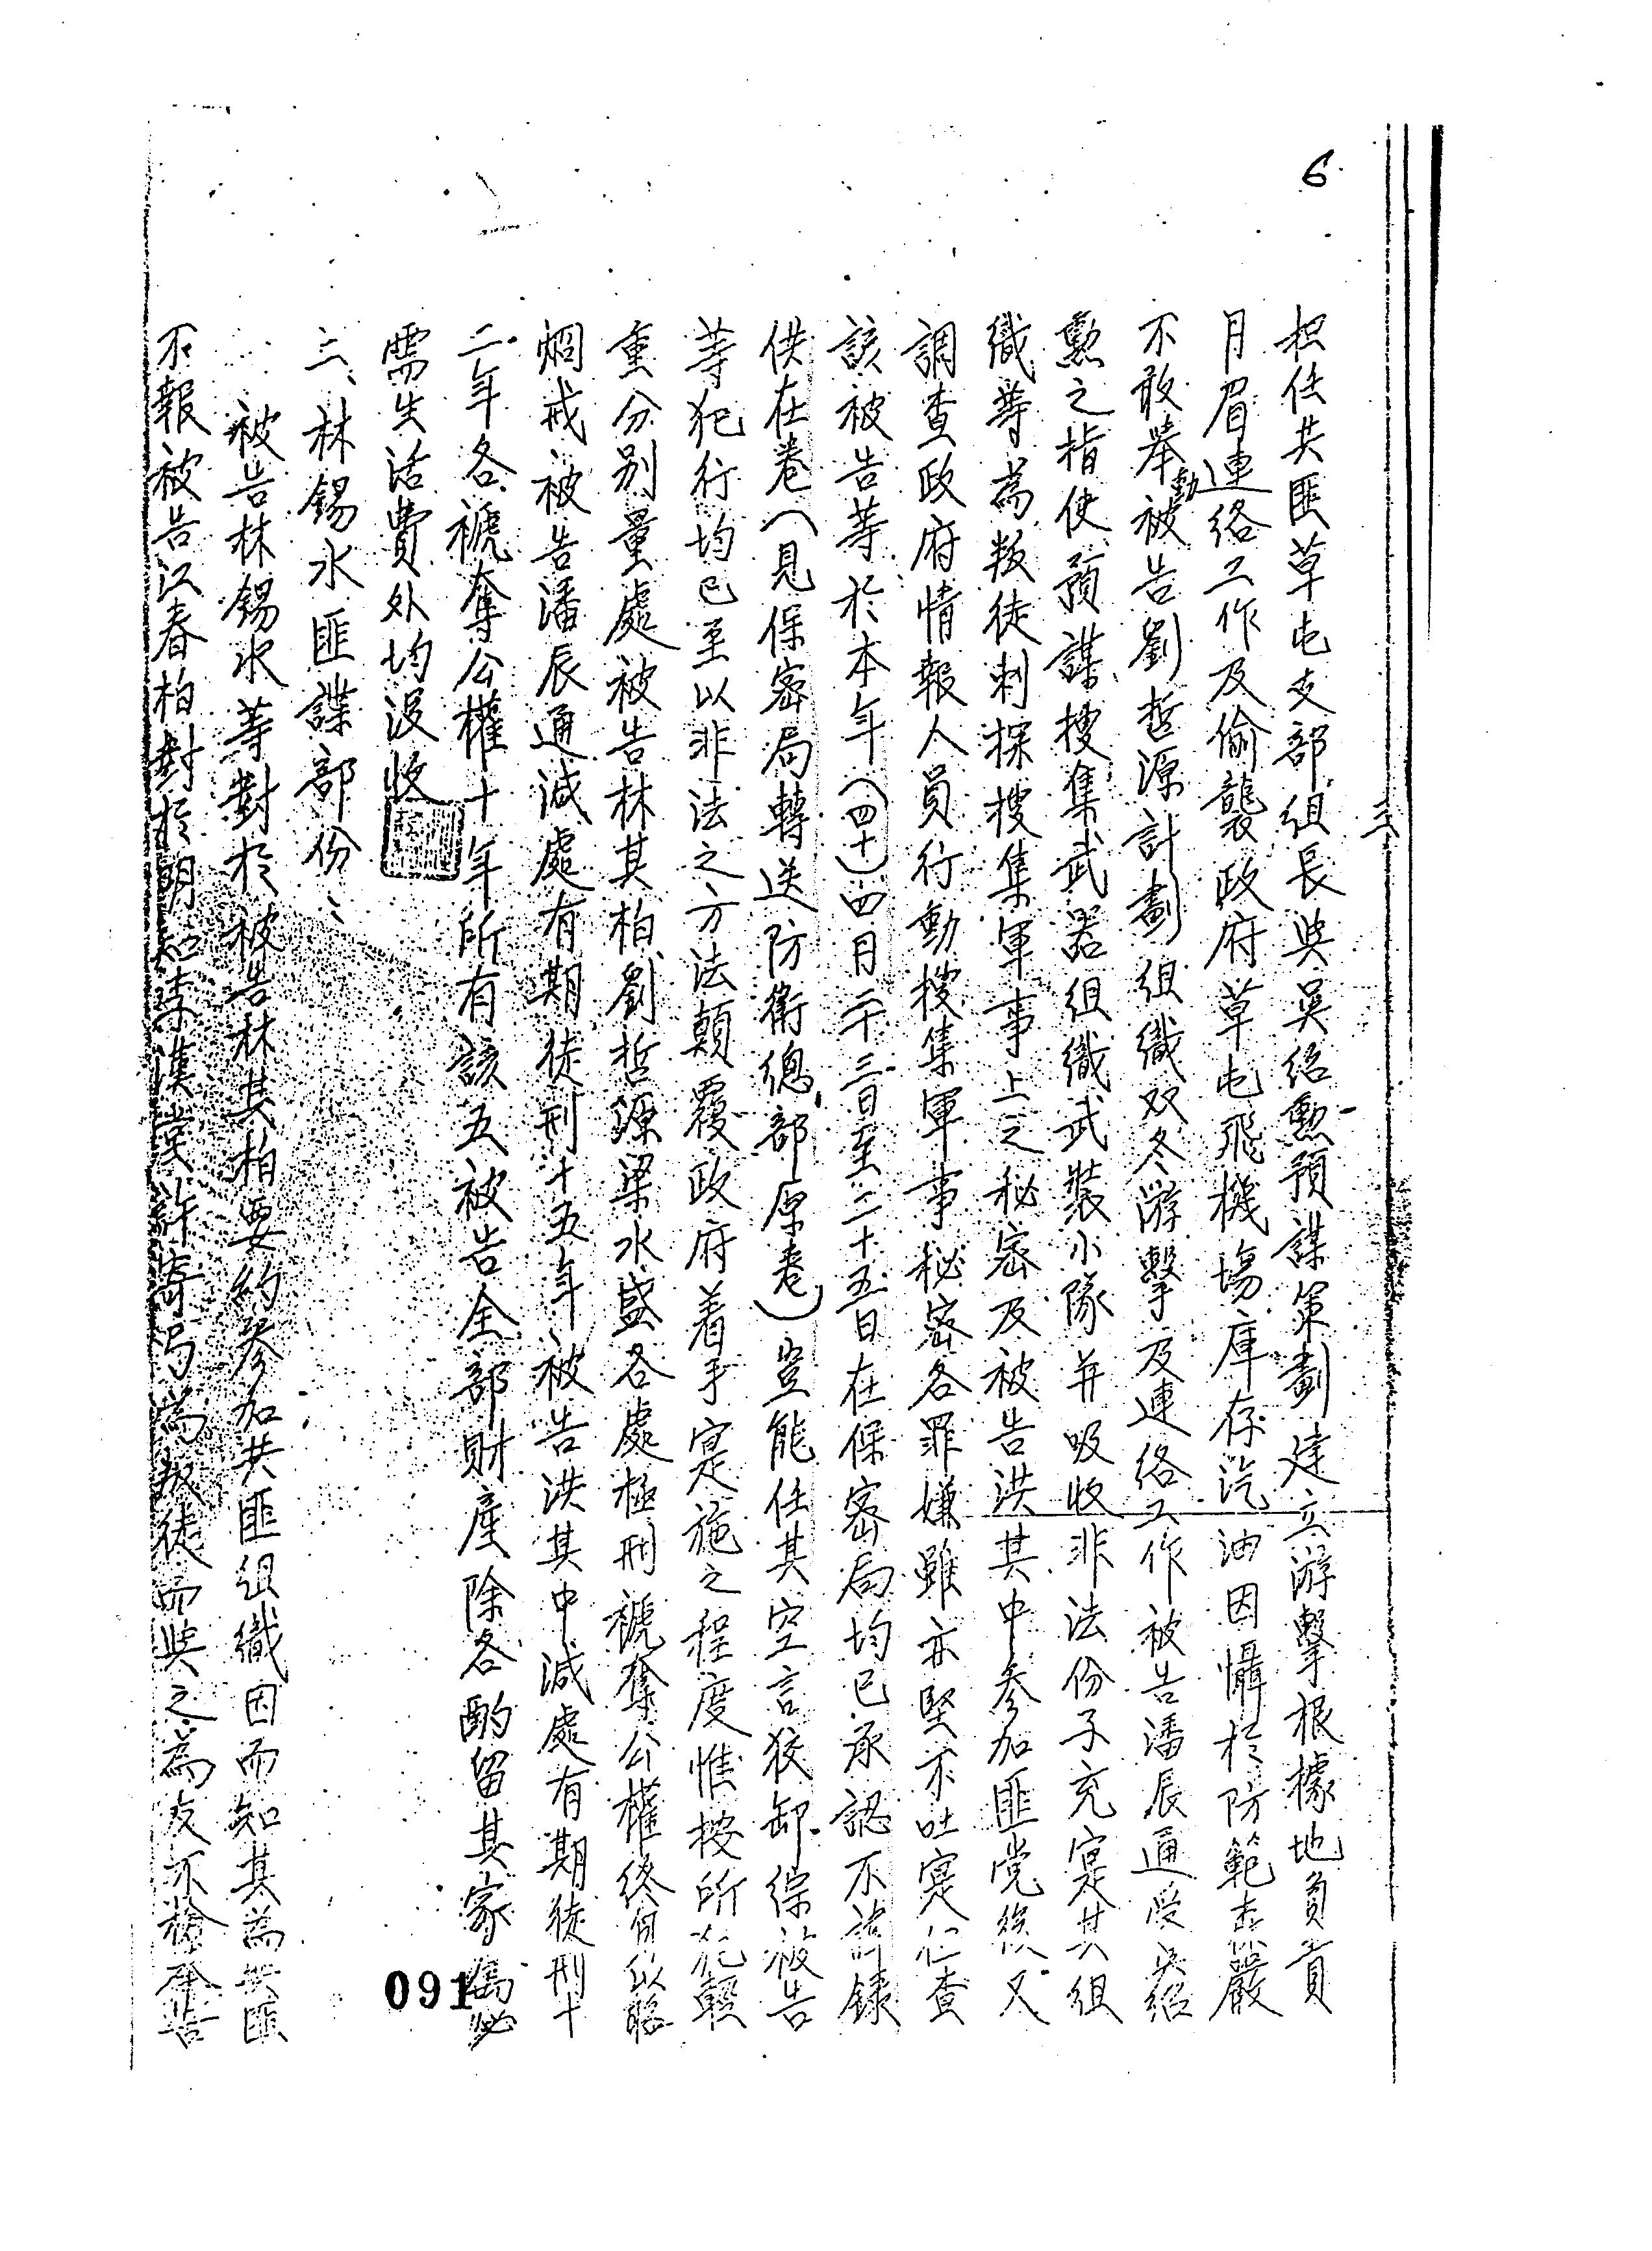 6
三
担任共匪草屯支部組長與吳紹勲預謀策劃建立游擊根據地負責
月眉連絡工作及偷襲政府草屯飛機場庫存汽油因懾於防範森嚴
不敢舉動被告劉哲源計劃組織双冬游擊及連絡工作被告潘辰通受吳紹
勲之指使預謀搜集武器組織武裝小隊并吸收非法份子充寔其組
織等為叛徒刺探搜集軍事上之秘密及被告洪其中參加匪党後又
調查政府情報人員行動搜集軍事秘密各罪嫌雖亦堅不吐寔仁查
該被告等於本年(四十)四月二十三日至二十五日在保密局均已承認不諱錄
供在卷(見保密局轉送防衛總部原卷)豈能任其空言狡卸綜被告
等犯行均已至以非法之方法顛覆政府着手寔施之程度惟按所犯輕
重分別量處被告林其柏劉哲源梁水盛各處極刑褫奪公權終身以昭
烱戒被告潘辰通減處有期徒刑十五年被告洪其中減處有期徒刑十
二年各褫奪公權十年所有該五被告全部財產除各酌留其家屬必
需生活費外均沒收
三、林錫水匪諜部份:
被告林錫水等對於被告林其柏要約參加共匪組織因而知其為共匪
不報被告江春柏對於明知李漢堂許希寬為叛徒而與之為友不檢舉告
091